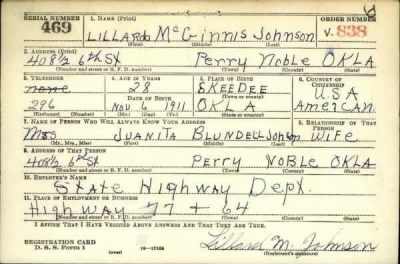 SERIAL NUMBER 1. NAME (Print) ORDER NUMBER
469 LILLARD McGINNIS JOHNSON V. 838
(First) (Middle) (Last)
2. ADDRESS (Print)
408½ 6th St Perry Noble OKLA
(Number and street or R. F. D. number) (Town) (County) (State)
3. TELEPHONE 4. AGE IN YEARS 5. PLACE OF BIRTH 6. COUNTRY OF CITIZENSHIP
none 28 SKEEDEE U.S.A
DATE OF BIRTH (Town or county)
296 Nov 6 1911 OKLA American
(Exchange) (Number) (Mo.) (Day) (Yr.) (State or country)
7. NAME OF PERSON WHO WILL ALWAYS KNOW YOUR ADDRESS 8. RELATIONSHIP OF THAT PERSON
Mrs JUANITA BLUNDELL Johnson WIFE
(Mr., Mrs., Miss) (First) (Middle) (Last)
9. ADDRESS OF THAT PERSON
408½ 6th St Perry NOBLE OKLA
(Number and street or R. F. D. number) (Town) (County) (State)
10. EMPLOYER'S NAME
State Highway Dept.
11. PLACE OF EMPLOYMENT OR BUSINESS
Highway 77 + 64
(Number and street or R. F. D. number) (Town) (County) (State)
I AFFIRM THAT I HAVE VERIFIED ABOVE ANSWERS AND THAT THEY ARE TRUE.
REGISTRATION CARD
D. S. S. FORM 1 (over) 16—17105
Lillard M. Johnson
(Registrant's signature)